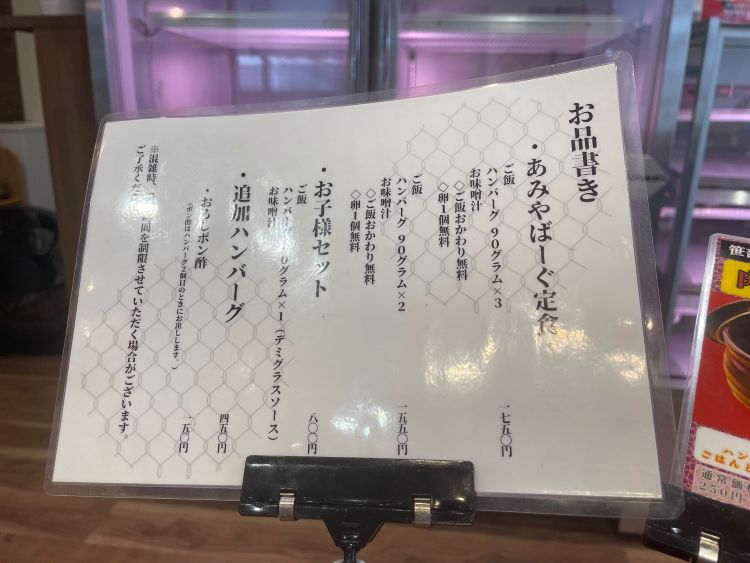 お品書き
・あみやばーぐ定食
ご飯
ハンバーグ 90グラム×3
お味噌汁
◇ご飯おかわり無料
◇卵1個無料
一七五〇円
ご飯
ハンバーグ 90グラム×2
お味噌汁
◇ご飯おかわり無料
◇卵1個無料
一五五〇円
・お子様セット
ご飯
ハンバーグ 90グラム×1(デミグラスソース)
お味噌汁
八〇〇円
・追加ハンバーグ
四五〇円
・おろしポン酢
(ポン酢はハンバーグ2個目のときにお出しします。)
一五〇円
※混雑時、
間を制限させていただく場合がございます。
ご了承くだ
ハン
ごはんと
通常価格
250円